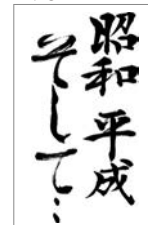 昭和 平成
そして…